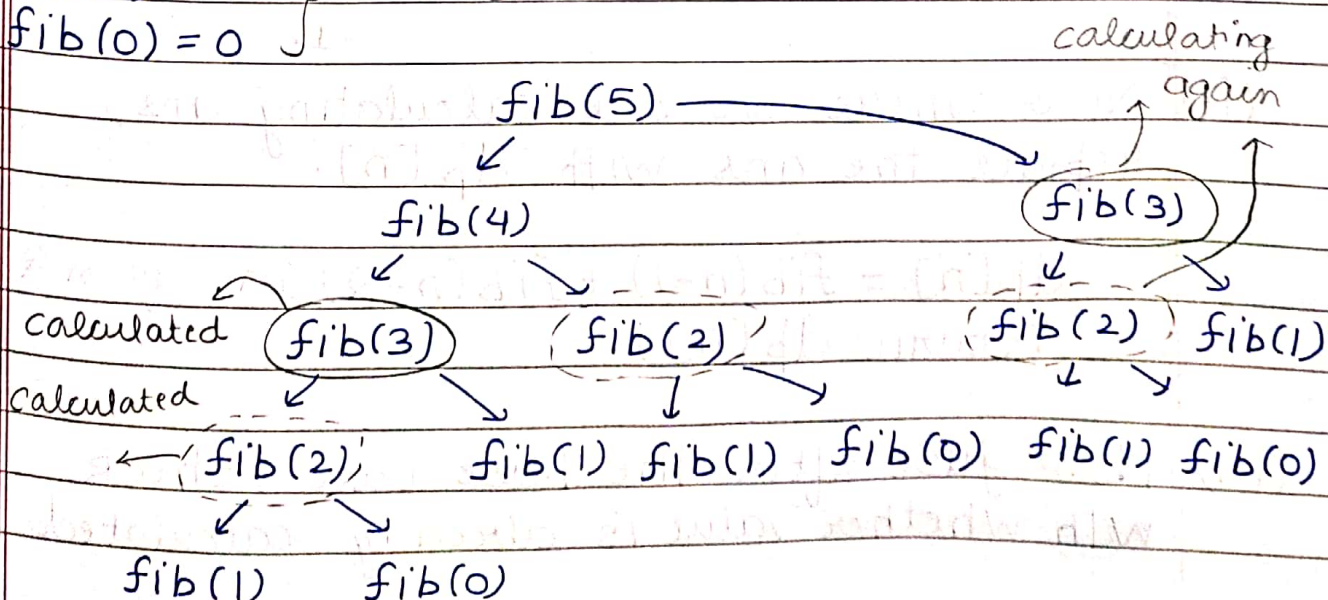 fib(0) = 0
calculating
again
fib(5)
fib(4)
fib(3)
calculated
fib(3)
fib(2)
fib(2)
fib(1)
calculated
fib(2)
fib(1)
fib(1)
fib(0)
fib(1)
fib(0)
fib(1)
fib(0)